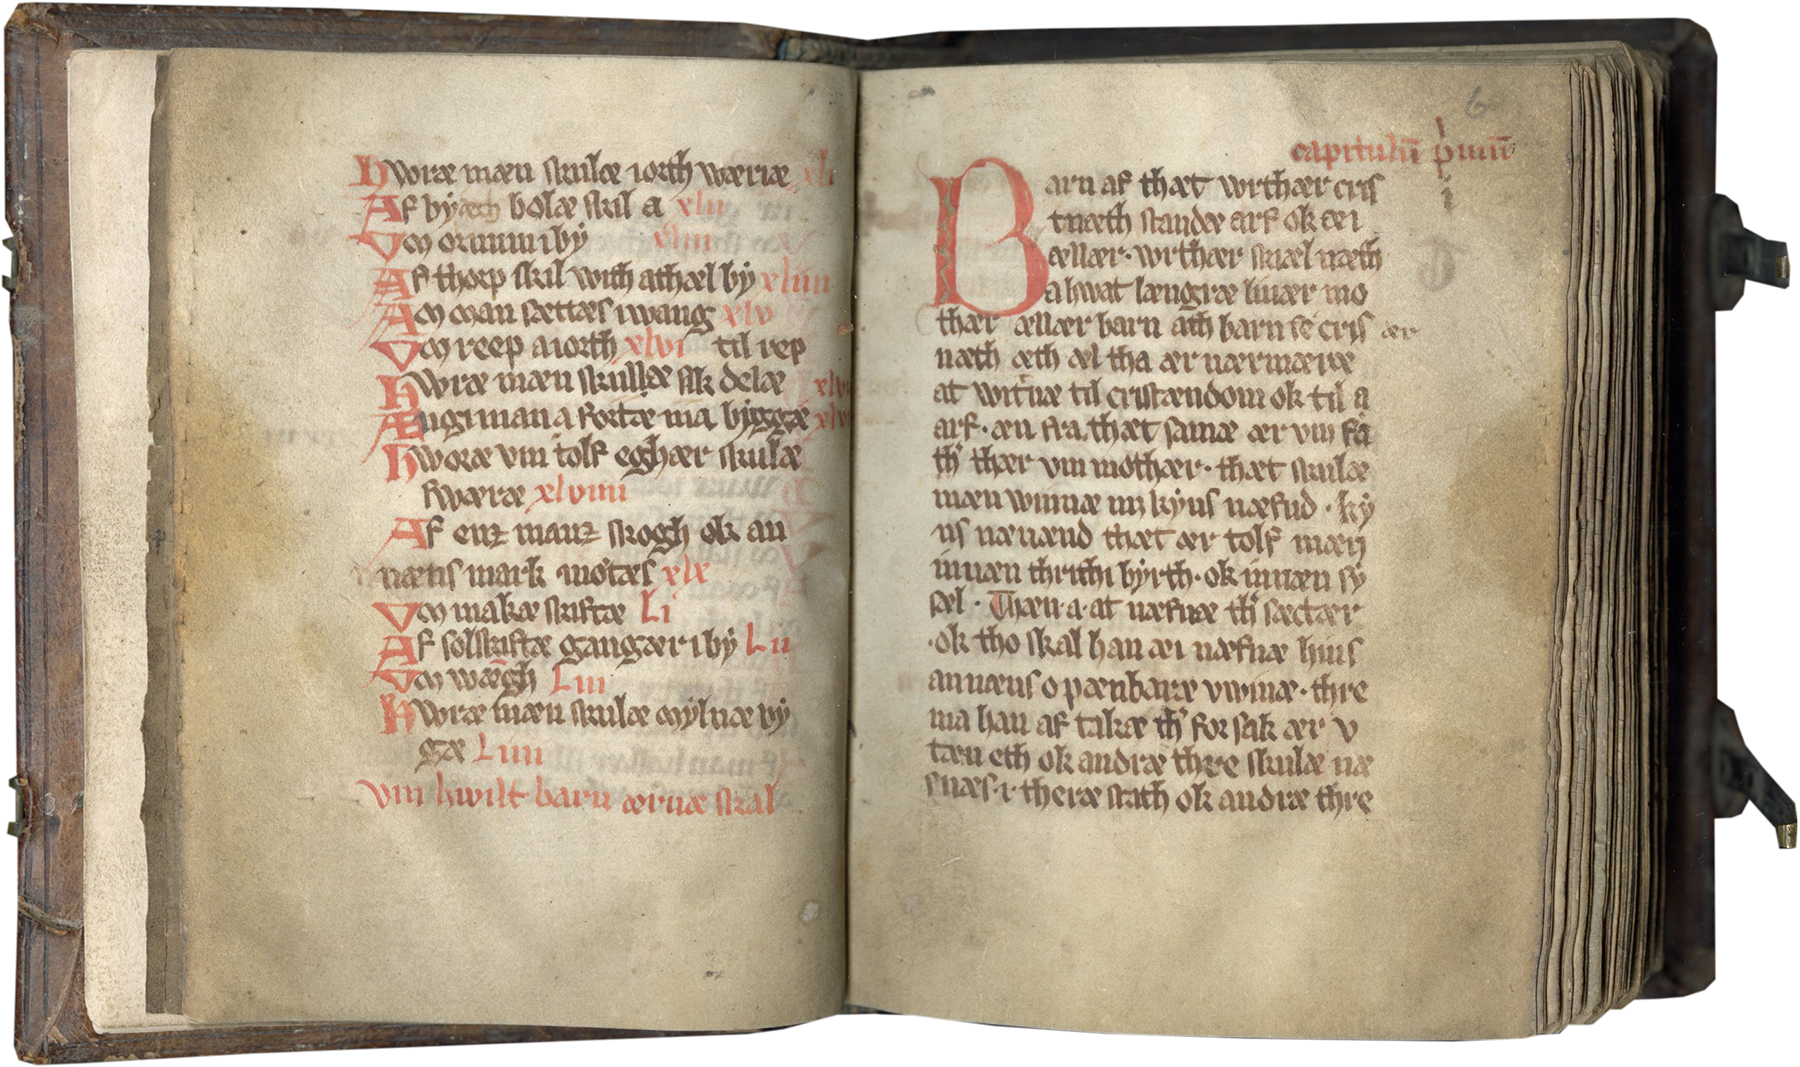 Hworæ mæn skulæ iorth wæriæ xli
Af by bolæ skil a xlii
Vm ornum i by xliii
Af thorp skil with athæl by xliiii
Am man sættæs i wang xlv
Vm reep a iorth xlvi til rep
Hworæ mæn skullæ sik delæ xlvii
Ængi man a fortæ ma byggæ
Hworæ vm tolf eghær skulæ
swæræ xlviiii
Af enz manz skogh ok an
næns mark møtæs
Vm makæ skiftæ Li
Af solskiftæ gangær i by Lii
Vm wægh Liii
Hworæ mæn skulæ mylnæ by
gæ Liiii
vm hwilt barn ærnæ skal
6
capitulū p̄imū
i
Barn af thæt wrthær cris
tnæth standæ arf ok æi
ællær · wrthær skiæl næth
a hwat længræ liuær mo
thær ællær barn ath barn se cris ær
næth æth æl tha ær nærmæræ
at witnæ til cristændom ok til a
arf · æn fra thæt samæ ær vm fa
th' thær vm mothær · thæt skulæ
mæn winnæ mz kyns næfnd · ky
ns næuænd thæt ær tolf mæn
innæn thrithi byrth · ok innæn sy
sæl · Thæn · a · at næfnæ th' sæctær
· ok tho skal han æi næfnæ hins
annæns opænbaræ vwinæ · thre
ma han af takæ th' for sak ær v
tæn eth ok andræ thre skulæ næ
fnæs · i · theræ stath ok andræ thre